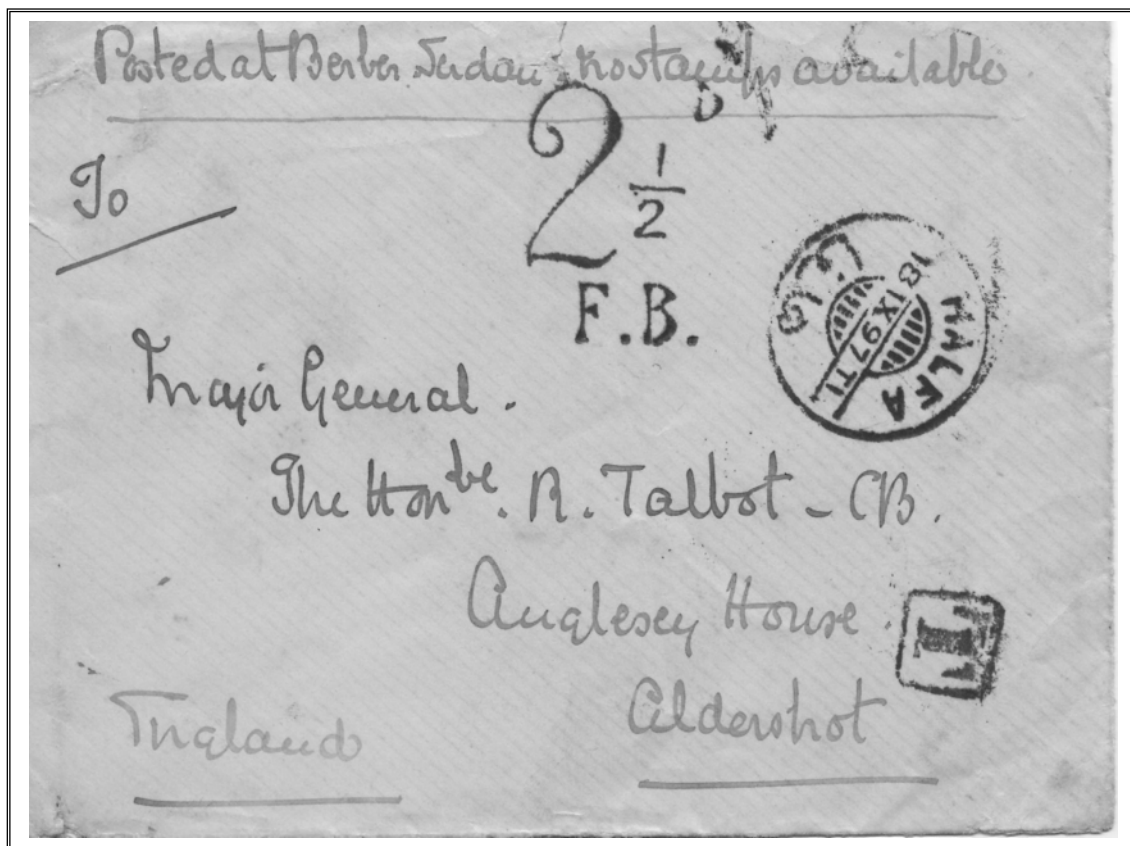 Posted at Berber Sudan. No stamps available
To
2 1/2
F.B.
حلفا
HALFA
18 IX 97 T1
Major General.
The Honble. R. Talbot - CB.
Anglesey House.
T
Aldershot
England